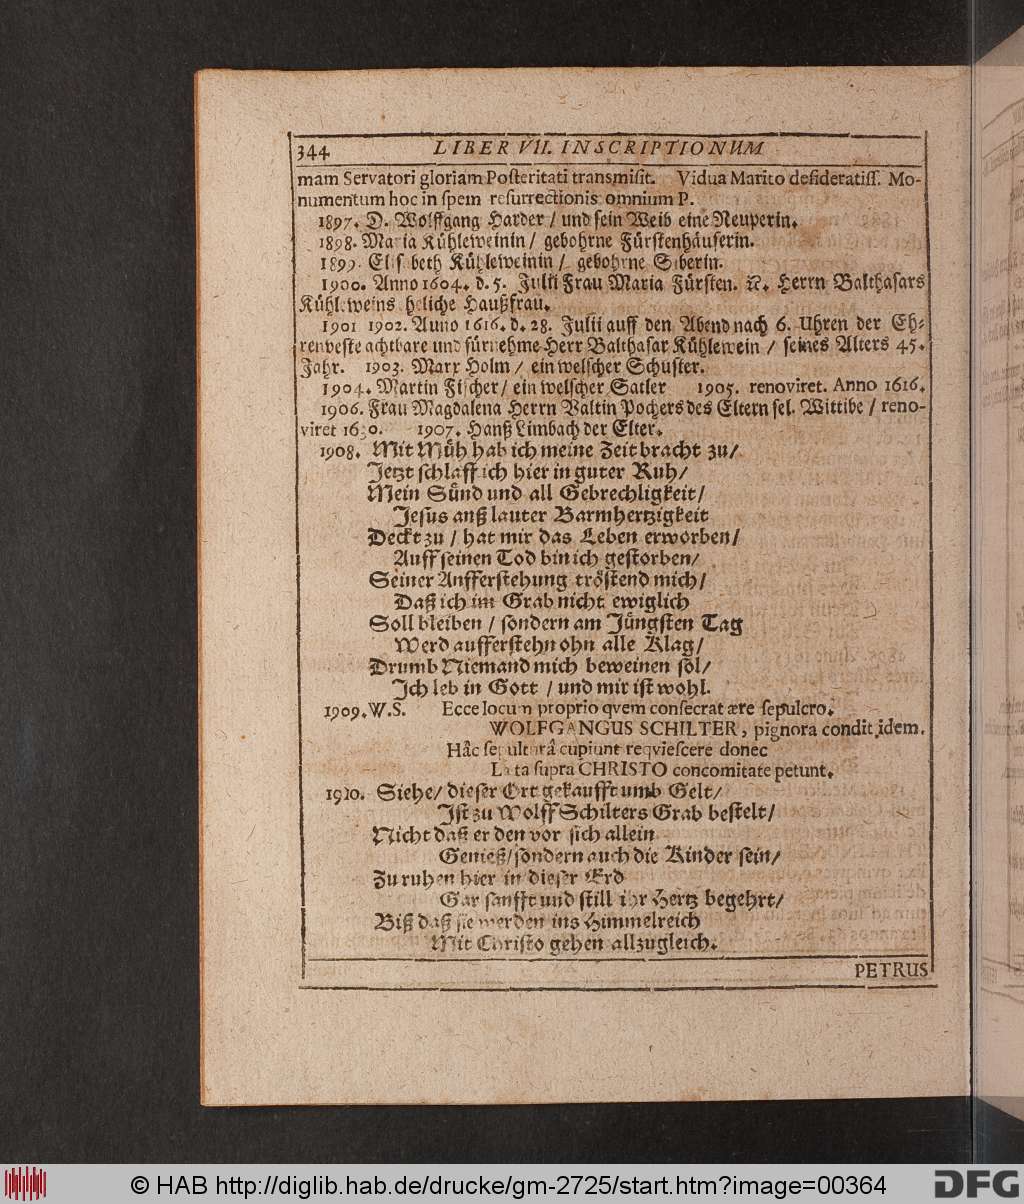 344 LIBER VII. INSCRIPTIONUM
mam Servatori gloriam Posteritati transmisit. Vidua Marito desideratiss. Mo-
numentum hoc in spem resurrectionis omnium P.
1897. D. Wolffgang Harder / und sein Weib eine Neuperin.
1898. Maria Kühleweinin / gebohrne Fürstenhäuserin.
1899. Elisabeth Kühleweinin / gebohrne Siberin.
1900. Anno 1604. d. 5. Julii Frau Maria Fürsten. Herrn Balthasars
Kühleweins heliche Haußfrau.
1901 1902. Anno 1616. d. 28. Julii auff den Abend nach 6. Uhren der Eh-
renveste achtbare und fürnehme Herr Balthasar Kühlewein / seines Alters 45.
Jahr. 1903. Marx Holm / ein welscher Schuster.
1904. Martin Fischer / ein welscher Satler 1905. renoviret. Anno 1616.
1906. Frau Magdalena Herrn Valtin Pochers des Eltern sel. Wittibe / reno-
viret 1630. 1907. Hanß Limbach der Elter.
1908. Mit Müh hab ich meine Zeit bracht zu /
Jetzt schlaff ich hier in guter Ruh /
Mein Sünd und all Gebrechligkeit /
Jesus auß lauter Barmhertzigkeit
Deckt zu / hat mir das Leben erworben /
Auff seinen Tod bin ich gestorben /
Seiner Aufferstehung tröstend mich /
Daß ich im Grab nicht ewiglich
Soll bleiben / sondern am Jüngsten Tag
Werd aufferstehn ohn alle Klag /
Drumb Niemand mich beweinen sol /
Ich leb in Gott / und mir ist wohl.
1909. W. S. Ecce locum proprio qvem consecrat ære sepulcro.
WOLFGANGUS SCHILTER, pignora condit idem.
Hâc sepulturâ cupiunt reqviescere donec
Læta supra CHRISTO concomitate petunt.
1910. Siehe / dieser Ort gekaufft umb Gelt /
Ist zu Wolff Schilters Grab bestelt /
Nicht daß er den vor sich allein
Genieß / sondern auch die Kinder sein /
Zu ruhen hier in dieser Erd
Gar sanfft und still ihr Hertz begehrt /
Biß daß sie werden ins Himmelreich
Mit Christo gehen allzugleich.
PETRUS
© HAB http://diglib.hab.de/drucke/gm-2725/start.htm?image=00364
DFG